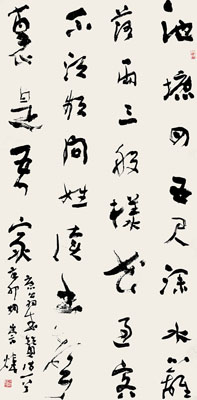 池塘四五尺深水籬
落兩三般樣花過客
不須頻問姓讀書聲
裏是吾家
翁承贊詩一首
辛卯